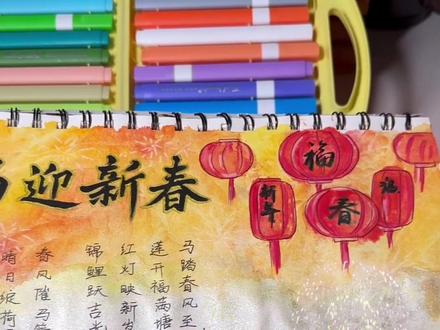 迎新春
福
新年
春
福
马踏春风至
莲开福满塘
红灯映新
锦鲤跃吉
春风催马
晴日绽荷